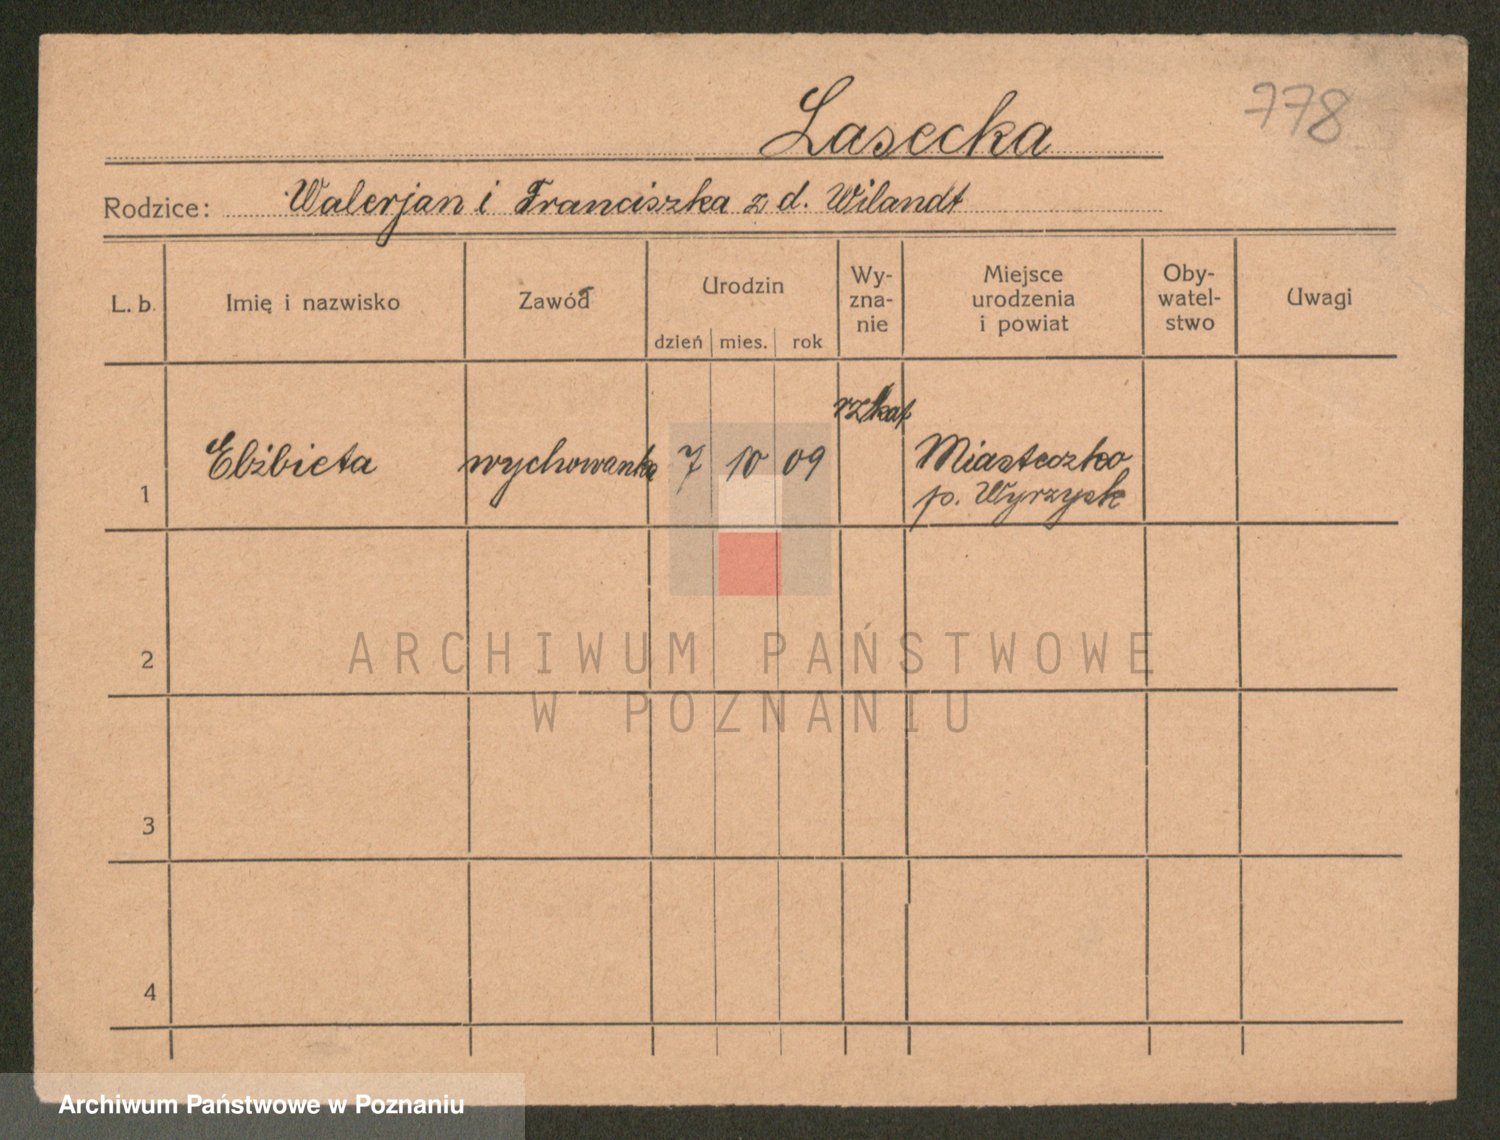 Lasecka
778
Rodzice: Walerjan i Franciszka z d. Wilandt
L. b.
Imię i nazwisko
Zawód
Urodzin
dzień mies. rok
Wy-
zna-
nie
Miejsce
urodzenia
i powiat
Oby-
watel-
stwo
Uwagi
1 Elżbieta wychowanka 7 10 09 rz kat Miasteczko
p. Wyrzysk
2
ARCHIWUM PAŃSTWOWE
W POZNANIU
3
4
Archiwum Państwowe w Poznaniu